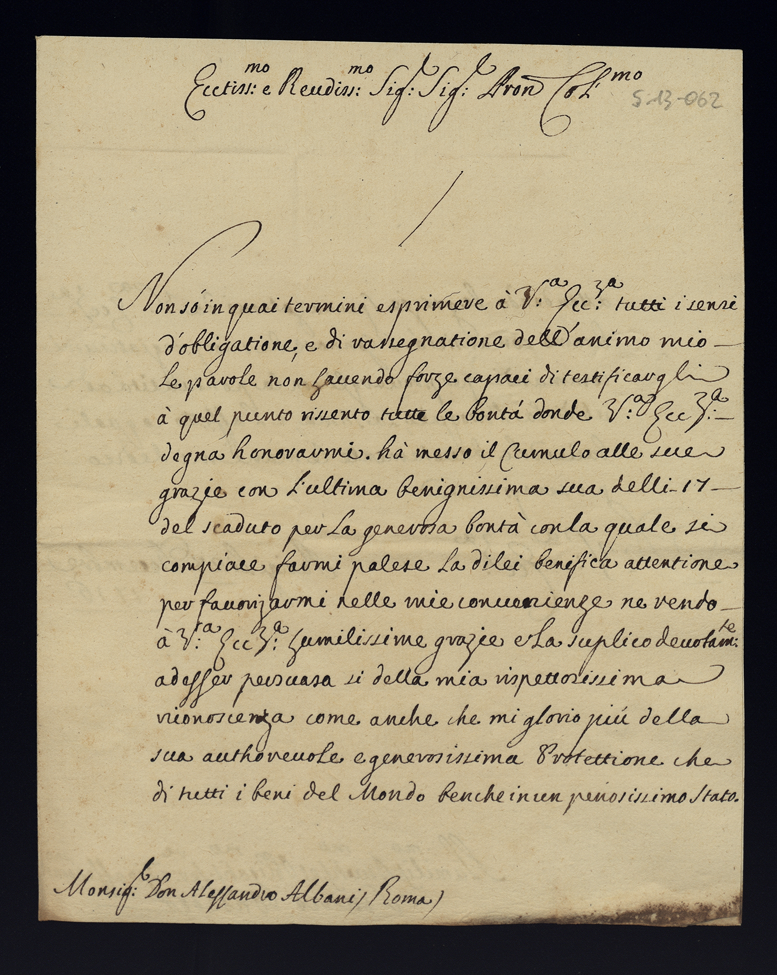 Ecctiss:mo e Reudiss:mo Sig:r Sig:r Pron Col:mo
5-13-062
Non só in quai termini esprimere à V:a Ecc:za tutti i sensi
d'obligatione, e di rassegnatione dell'animo mio
le parole non hauendo forze capaci di testificargli
à quel punto rissento tutte le bontá donde V:a Ecc:za
degna honorarmi. hà messo il Cumulo alle sue
grazie con l'ultima benignissima sua delli 17
del scaduto per La generosa bontà con la quale si
compiace farmi palese La di lei benifica attentione
per fauorizarmi nelle mie conuenienze ne rendo
à V:ra Ecc:za humilissime grazie e La suplico deuotam:te
ad esser persuasa si della mia rispettosissima
riconoscenza come anche che mi glorio piú della
sua authoreuole e generosissima Protettione che
di tutti i beni del Mondo benche in un penosissimo stato.
Monsig:r Don Alessandro Albani / Roma /